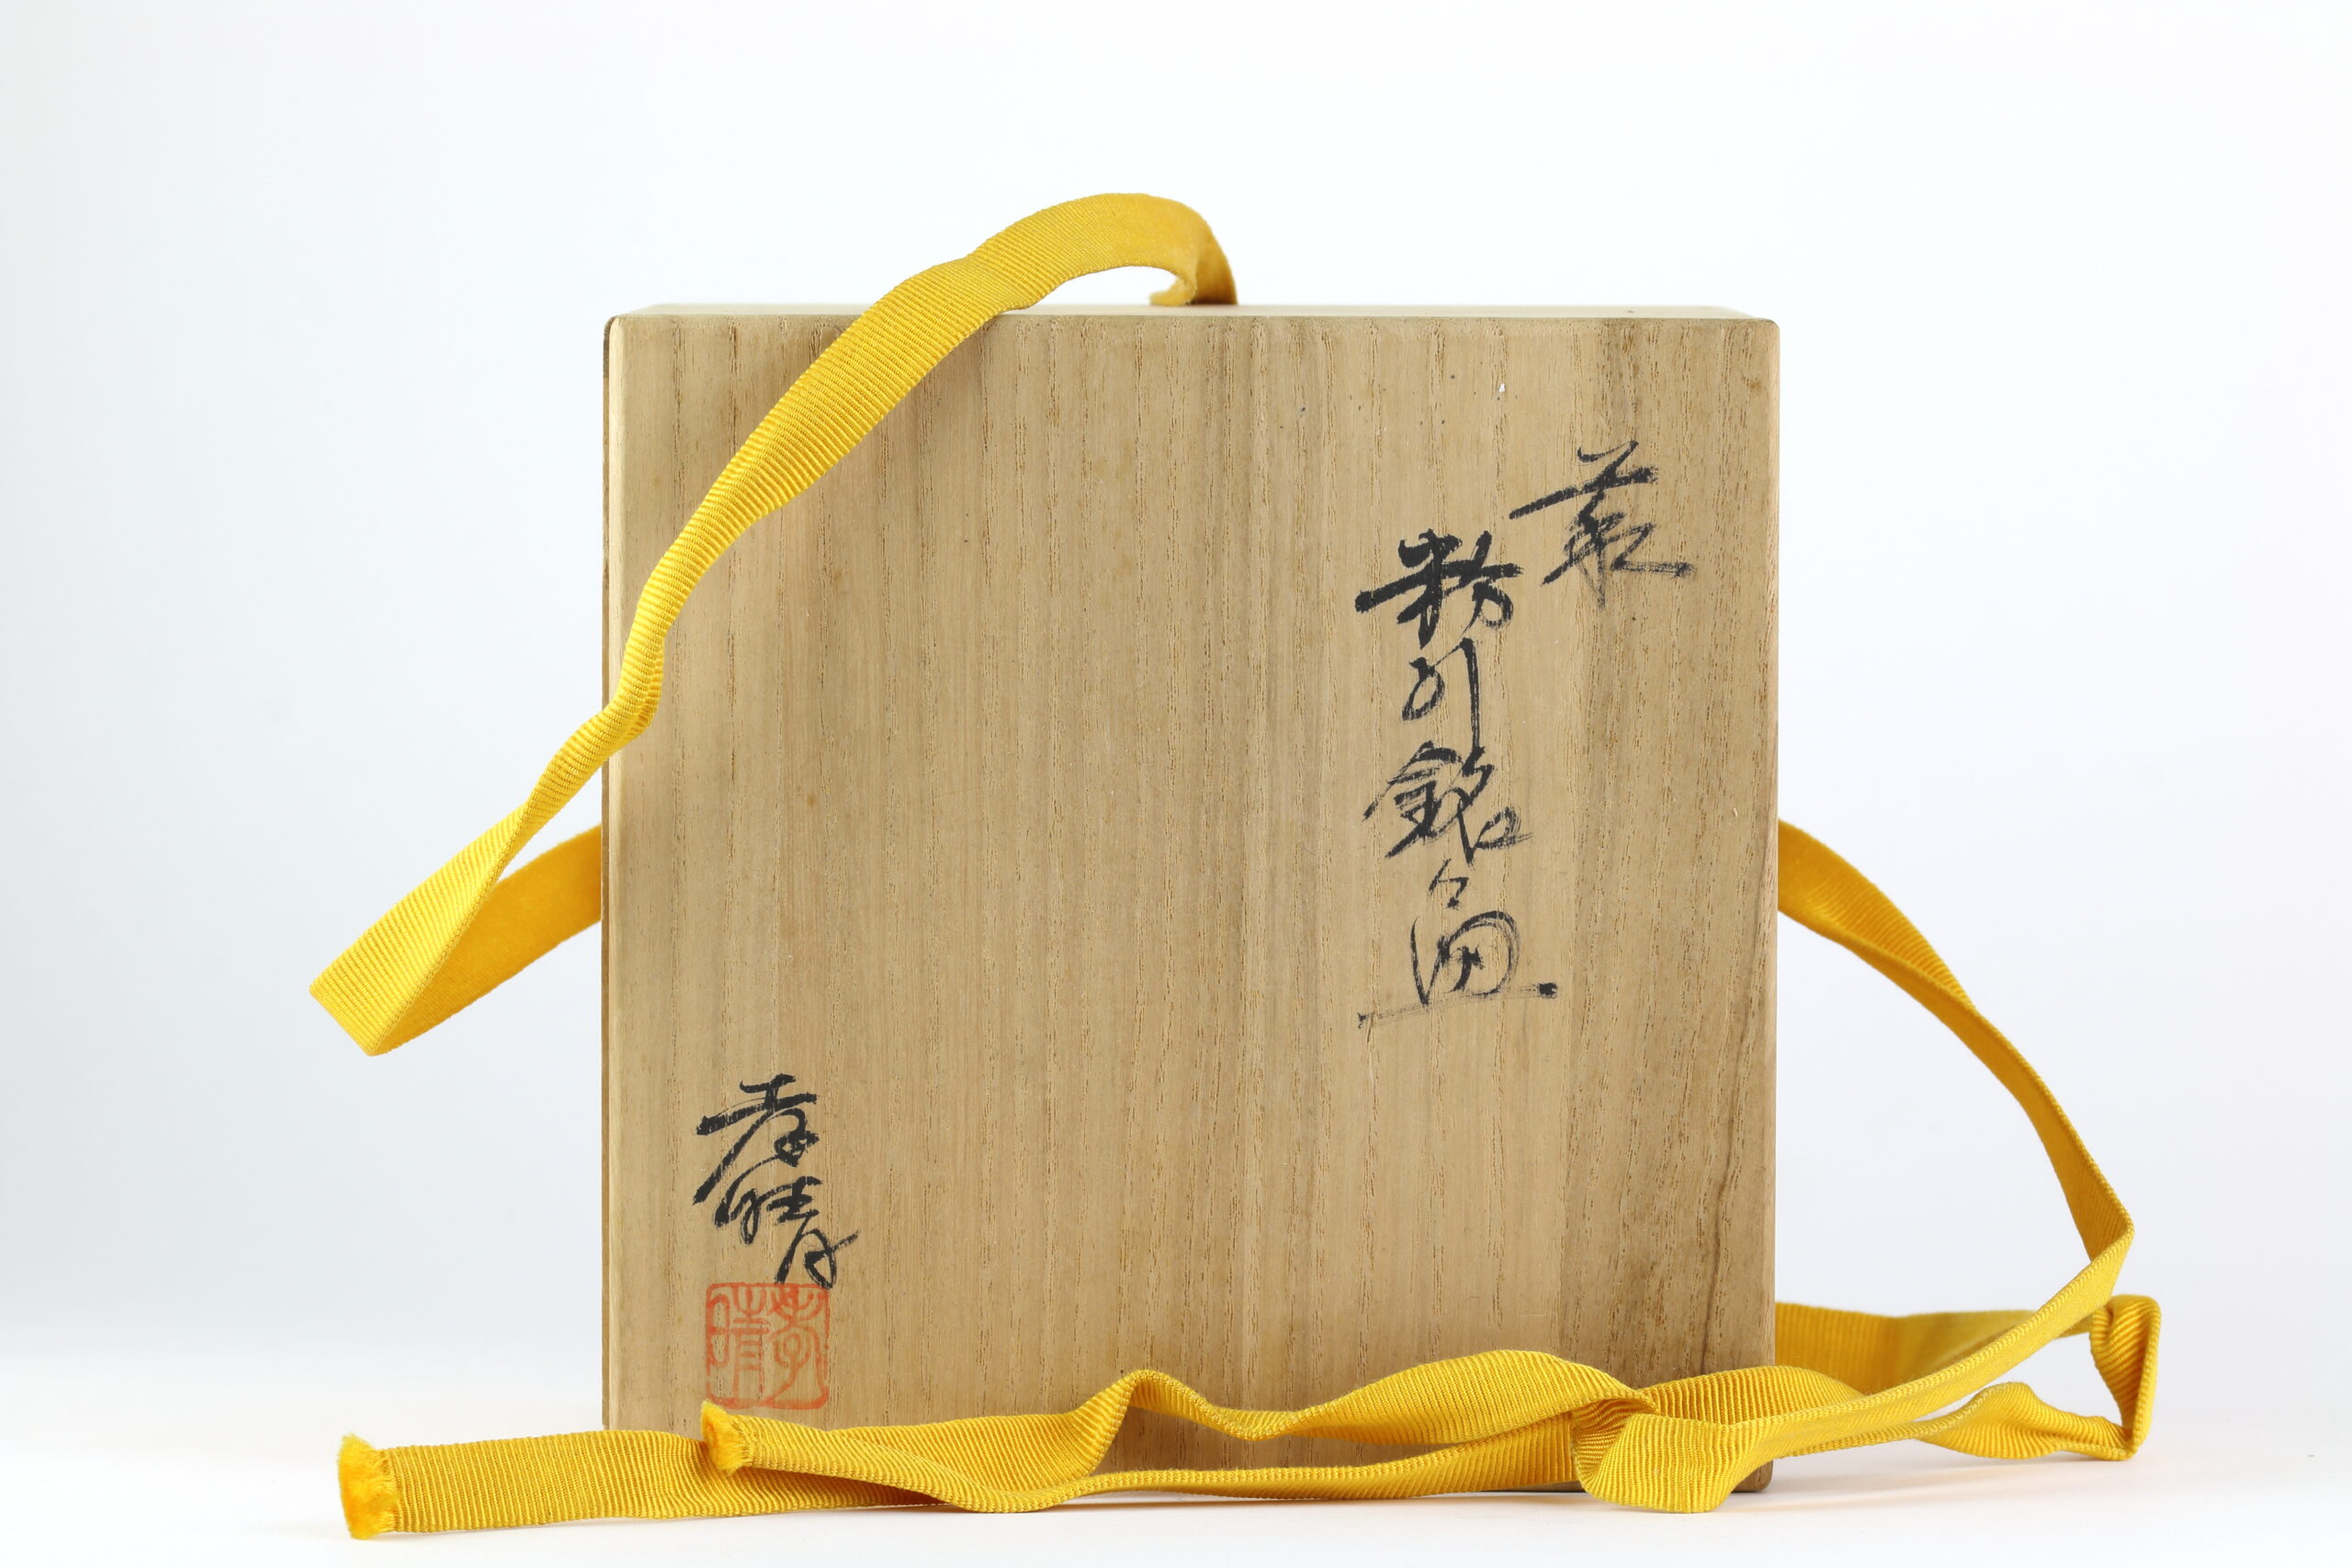 萩
粉引銘々皿
孝晴
孝晴